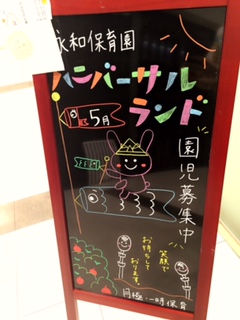 永和保育園
ハンバーサル
ランド
5月
園児募集中
笑顔で
お待ちして
おります。
月極・一時保育